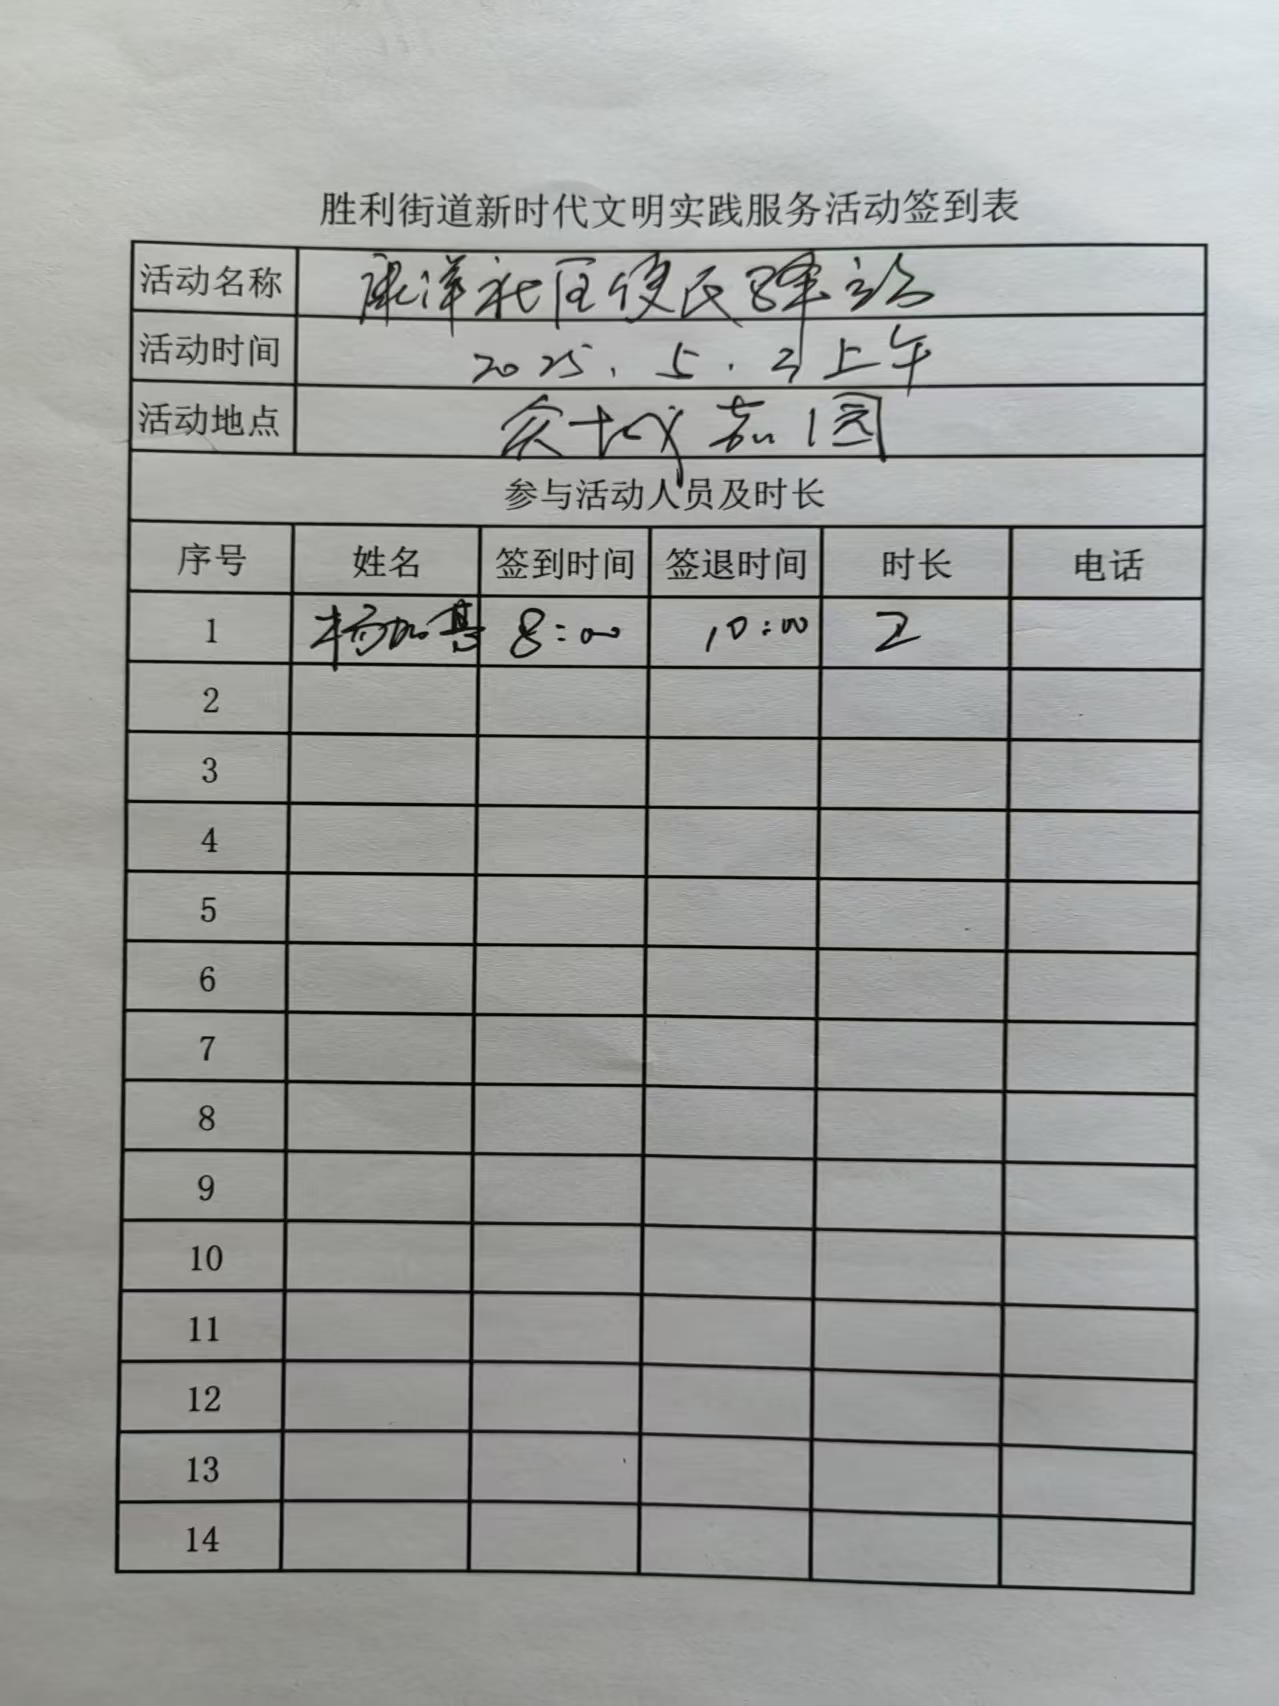 胜利街道新时代文明实践服务活动签到表
活动名称 康洋社区便民驿站
活动时间 2025.5.21上午
活动地点 众成嘉园
参与活动人员及时长
序号 姓名 签到时间 签退时间 时长 电话
1 杨加喜 8:00 10:00 2
2
3
4
5
6
7
8
9
10
11
12
13
14